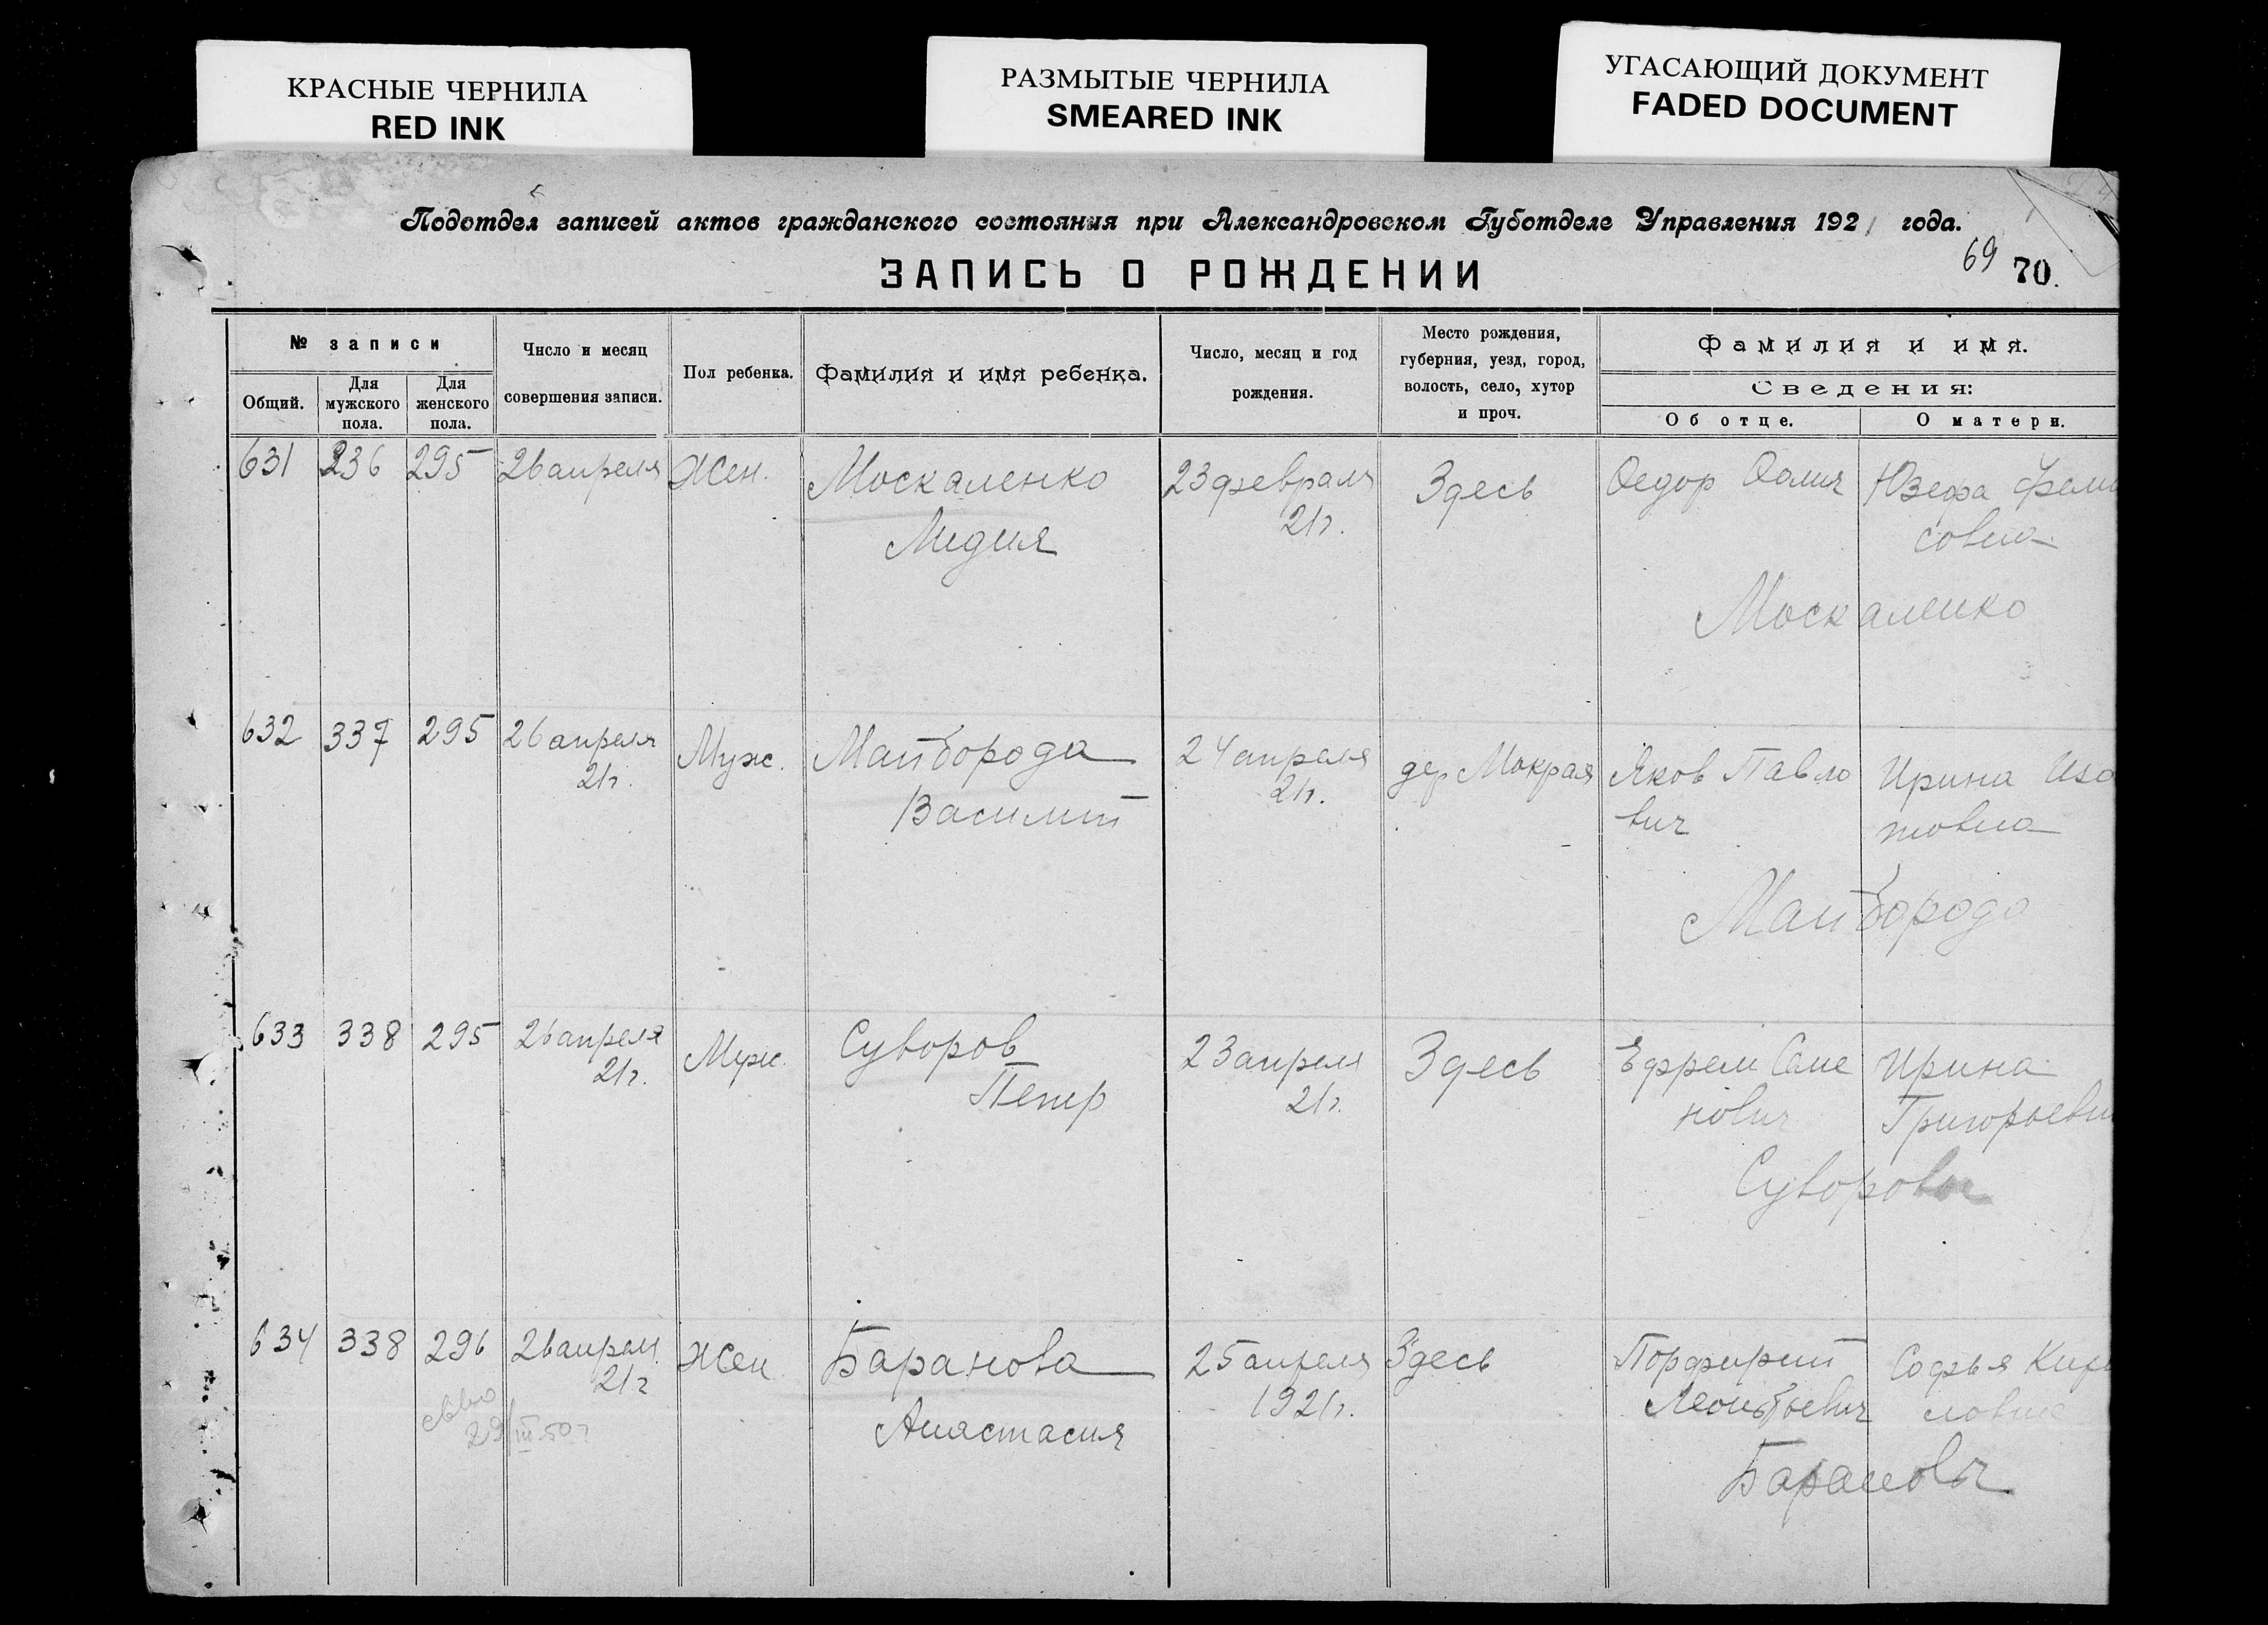 КРАСНЫЕ ЧЕРНИЛА
RED INK
РАЗМЫТЫЕ ЧЕРНИЛА
SMEARED INK
УГАСАЮЩИЙ ДОКУМЕНТ
FADED DOCUMENT
Подотдел записей актов гражданского состояния при Александровском Губотделе Управления 1921 года.
ЗАПИСЬ О РОЖДЕНИИ
69 70.
№ записи
Общий.
Для мужского пола.
Для женского пола.
Число и месяц
совершения записи.
Пол ребенка.
Фамилия и имя ребенка.
Число, месяц и год
рождения.
Место рождения,
губерния, уезд, город,
волость, село, хутор
и проч.
Фамилия и имя.
Сведения:
Об отце.
О матери.
631 336 295 26 апреля Жен. Москаленко 23 февраля Здесь Федор Юзефа
21г.
Лидия
совна
Москаленко
632 337 295 26 апреля Муж. Майборода 24 апреля дер Мокрая Яков Павло Ирина Изо
21г. Василий 21г. вич товна
Майборода
633 338 295 26 апреля Муж. Суворов 23 апреля Здесь Ефрем Ирина
21г. Петр 21г. нович Григорьевн
Суворовы
634 338 296 26 апрел Жен Баранова 25 апреля Здесь Порфирий Софья Кири
21г Анастасия 1921г. Леонтьевич ловна
29/III 50г
Барановы